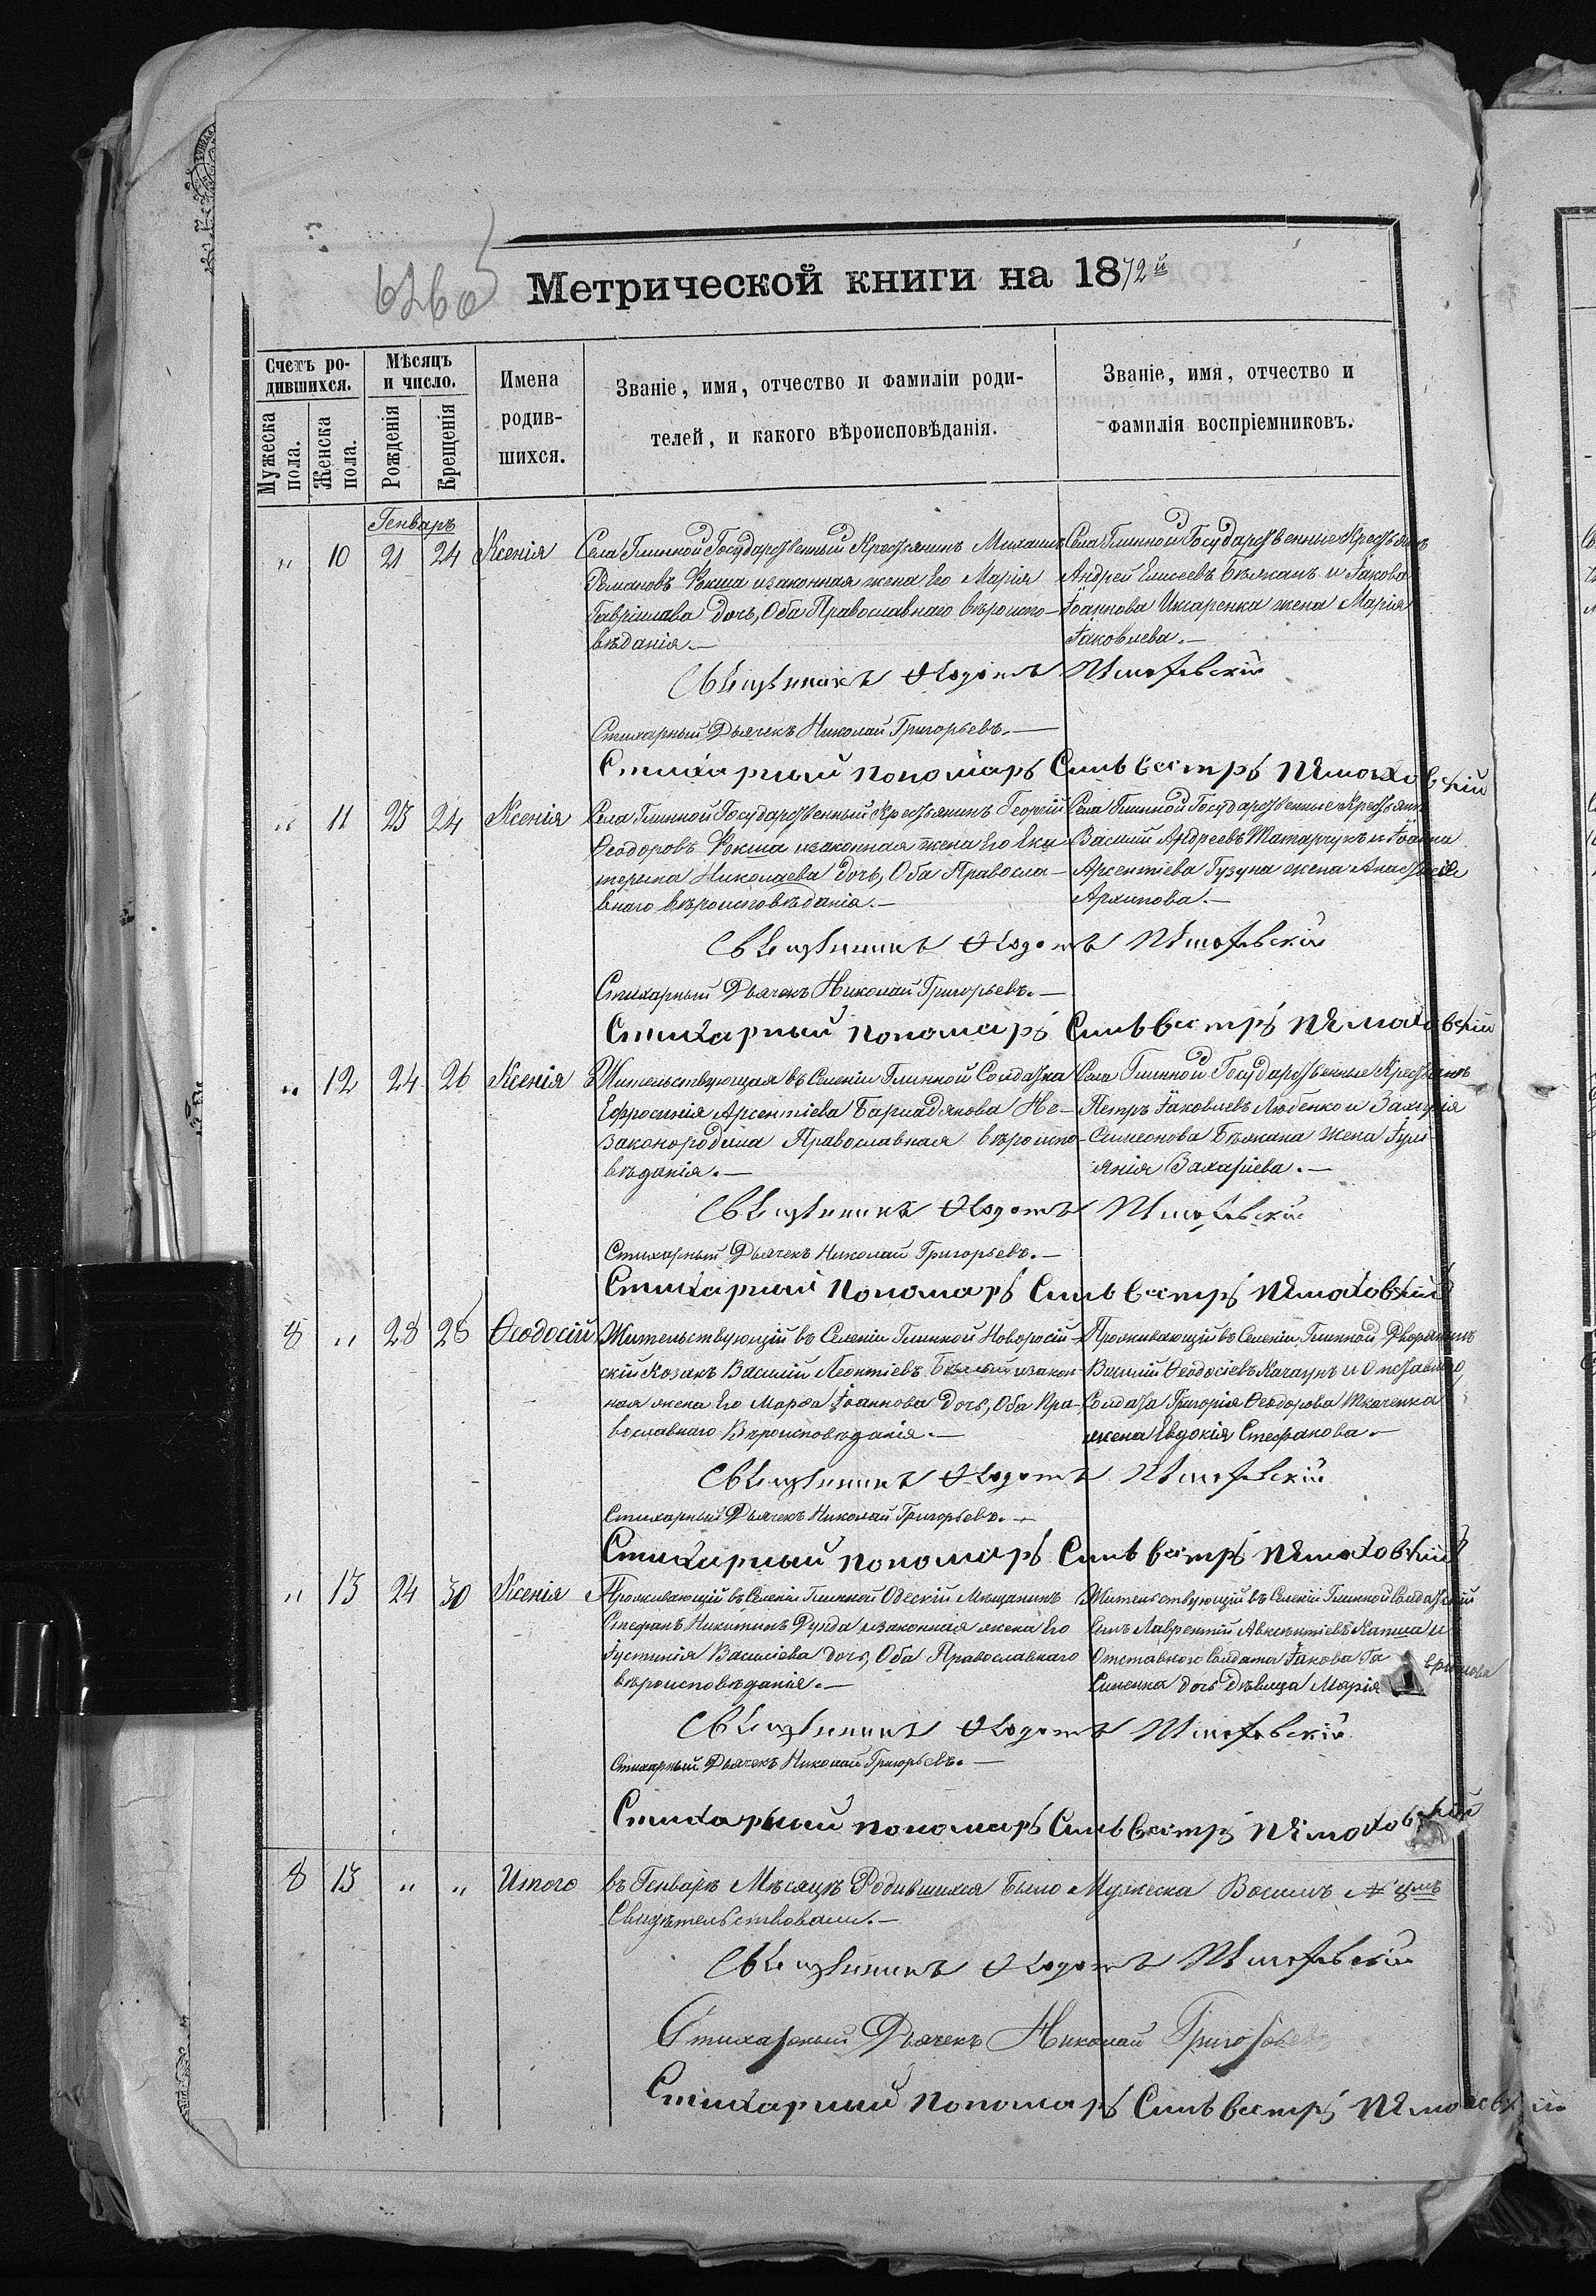 Метрической книги на 1872й
Счетъ ро-
дившихся.
Мѣсяцъ
и число.
Мужеска
пола.
Женска
пола.
Рожденія
Крещенія
Имена
родив-
шихся.
Званіе, имя, отчество и фамиліи роди-
телей, и какого вѣроисповѣданія.
Званіе, имя, отчество и
фамилія воспріемниковъ.
Генварь
„ 10 21 24 Ксенія
Села Глинной Государственный Крестьянинъ Михаилъ
Романовъ Кокша изаконная жена Его Марія
Гавріилова дочь, Оба Православнаго вѣроиспо-
вѣданія.—
Села Глинной Государственные Крестьянъ
Андрей Елисеевъ Бѣжанъ и Іакова
Іоаннова жена Марія
Іаковлева.—
Священникъ Ѳеодотъ
Стихарный Дьячекъ Николай Григорьевъ.—
Стихарный пономарь Сильвестръ
„ 11 23 24 Ксенія
Села Глинной Государственный Крестьянинъ Георгій
Ѳеодоровъ Кокша изаконная жена Его Ека-
терина Николаева дочь, Оба Правосла-
внаго вѣроисповѣданія.—
Села Глинной Государственные Крестьян
Василий Андреевъ Татарчукъ и Іоанна
Арсентіева Гузуна жена Анастасія
Архипова.—
Священникъ Ѳеодотъ
Стихарный Дьячекъ Николай Григорьевъ.—
Стихарный пономарь Сильвестръ
„ 12 24 26 Ксенія
Жительствующая въ Селеніи Глинной Солдатка
Ефросинія Арсентіева Не-
законородила Православная вѣроиспо-
вѣданія.—
Села Глинной Государственные Крестьянъ
Петръ Іаковлевъ Любенко и Захарія
Симеонова Бѣжана жена Іули-
янія Захаріева.—
Священникъ Ѳеодотъ
Стихарный Дьячекъ Николай Григорьевъ.—
Стихарный пономарь Сильвестръ
8 „ 28 28 Ѳеодосій
Жительствующій въ Селеніи Глинной Новоросій-
скій Козакъ Василій Леонтіевъ Бѣлый изакон-
ная жена Его Марѳа Іоаннова дочь, Оба Пра-
вославнаго Вѣроисповѣданія.—
Проживающій въ Селеніи Глинной Дворянинъ
Василій Ѳеодосіевъ Качаунъ и Отставнаго
Солдата Григорія Ѳеодорова Ткаченка
жена Евдокія Стефанова.—
Священникъ Ѳеодотъ
Стихарный Дьячекъ Николай Григорьевъ.—
Стихарный пономарь Сильвестръ
„ 13 24 30 Ксенія
Проживающій въ Селеніи Глинной Одескій Мѣщанинъ
Стефанъ Никитинъ Дунда изаконная жена Его
Іустинія Василіева дочь, Оба Православнаго
вѣроисповѣданія.—
Жительствующій въ Селеніи Глинной Солдатскій
Сынъ Лаврентій Авксентіевъ Капша и
Отставного Солдата Іакова
дочь Дѣвица Марія
Священникъ Ѳеодотъ
Стихарный Дьячекъ Николай Григорьевъ.—
Стихарный пономарь Сильвестръ
8 13 „ „ Итого
въ Генварѣ Мѣсяцѣ Родившихся Было Мужеска Восимъ № 8мъ
Свидѣтельствовали.—
Священникъ Ѳеодотъ
Стихарный Дьячекъ Николай Григорьевъ
Стихарный пономарь Сильвестръ